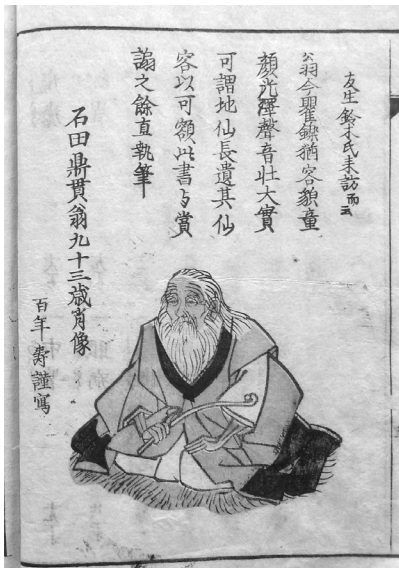 友生鈴木氏来訪而云
公翁今矍鑠猶容貌童
顔光澤聲音壮大實
可謂地仙長遺其仙
容以可額此書与賞
謚之餘直執筆
石田鼎貫翁九十三歳肖像
百年壽謹寫